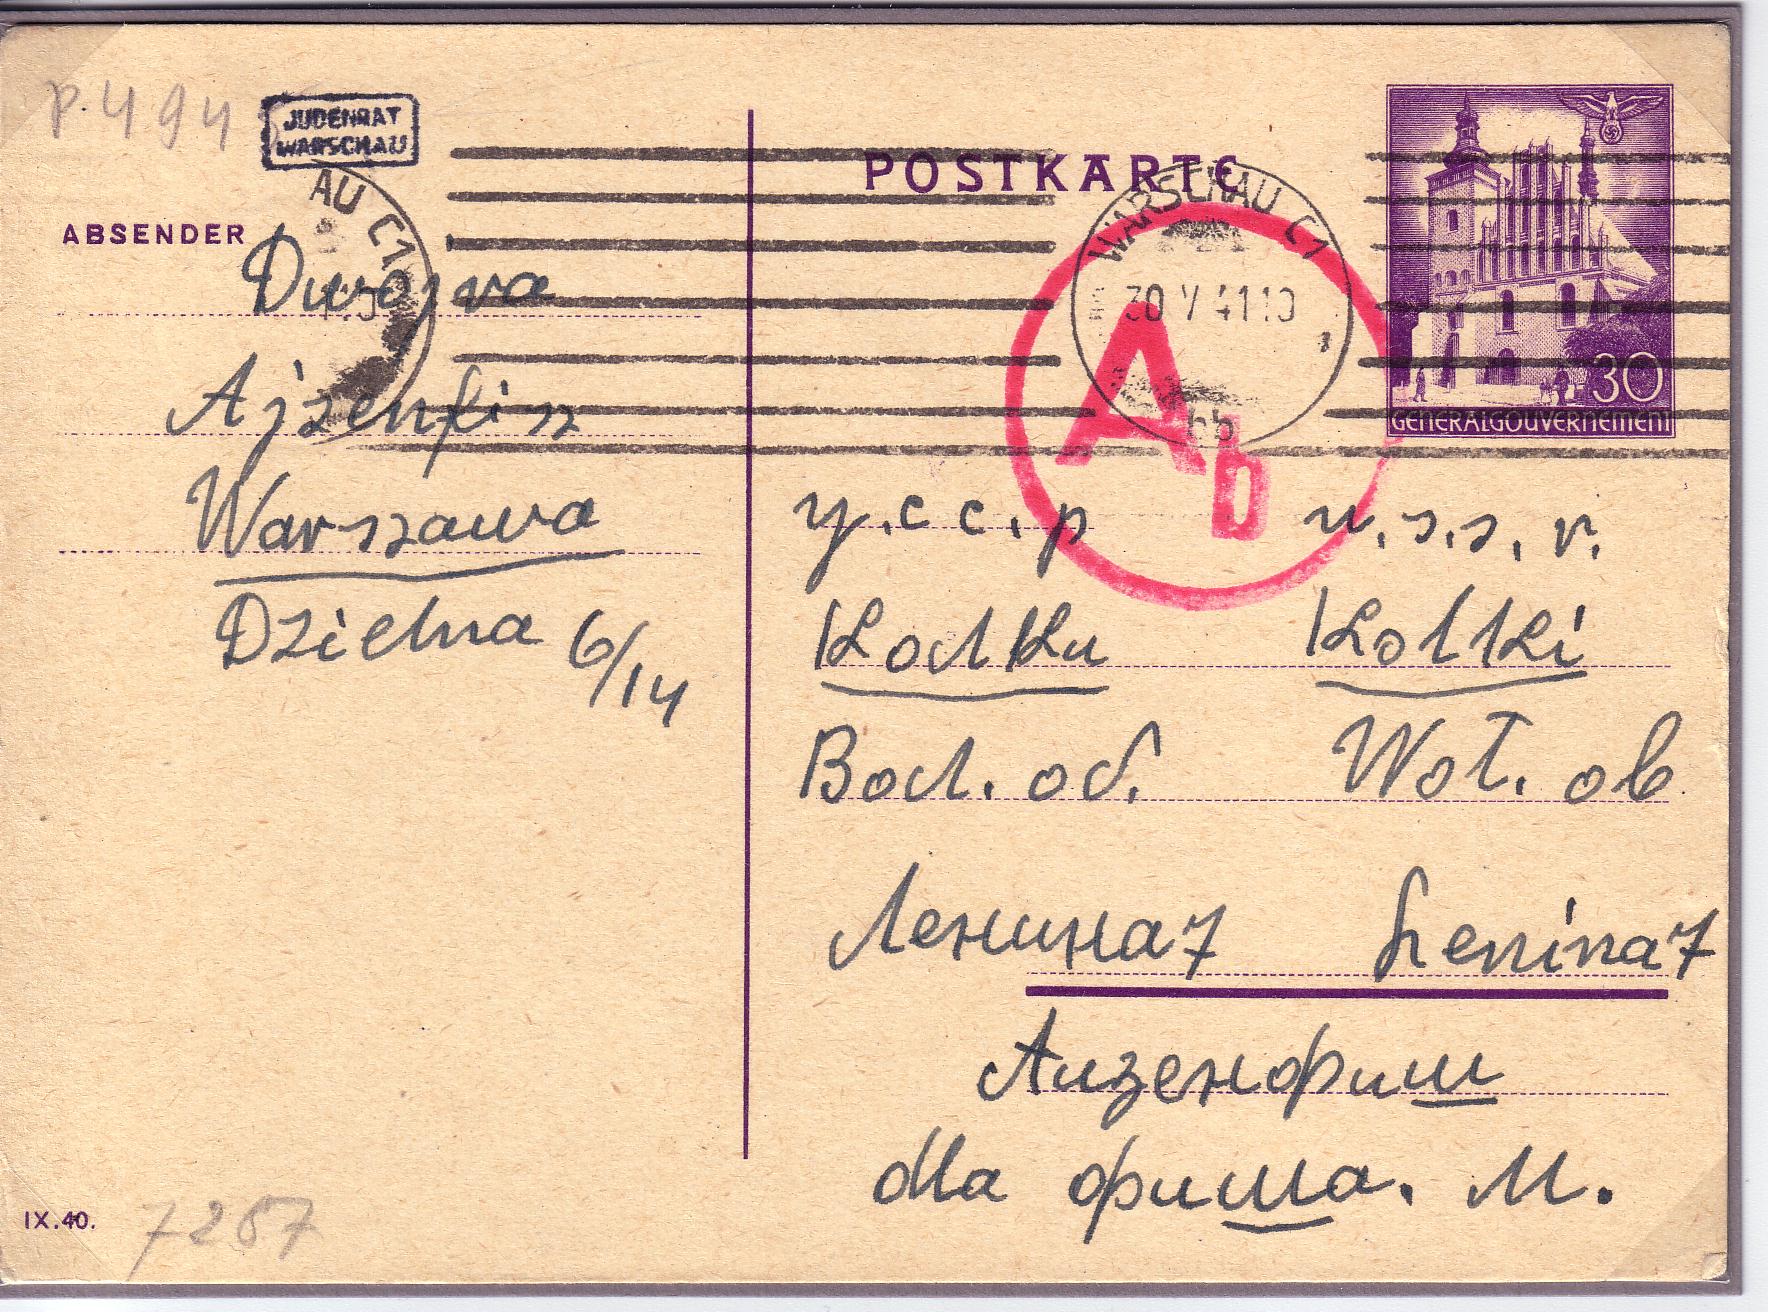 P. 494
JUDENRAT
WARSCHAU
AU C1
ABSENDER
Dwojra
Ajzenfisz
Warszawa
Dzielna 6/14
IX.40.
7267
POSTKARTE
WARSCHAU C1
30 V 41 10
bb
Ab
30
GENERALGOUVERNEMENT
У.С С.Р U.S.S.R.
Колки Kolki
Вол. об. Woł. ob
Ленина 7 Lenina 7
Аизенфиш
для фиша. М.